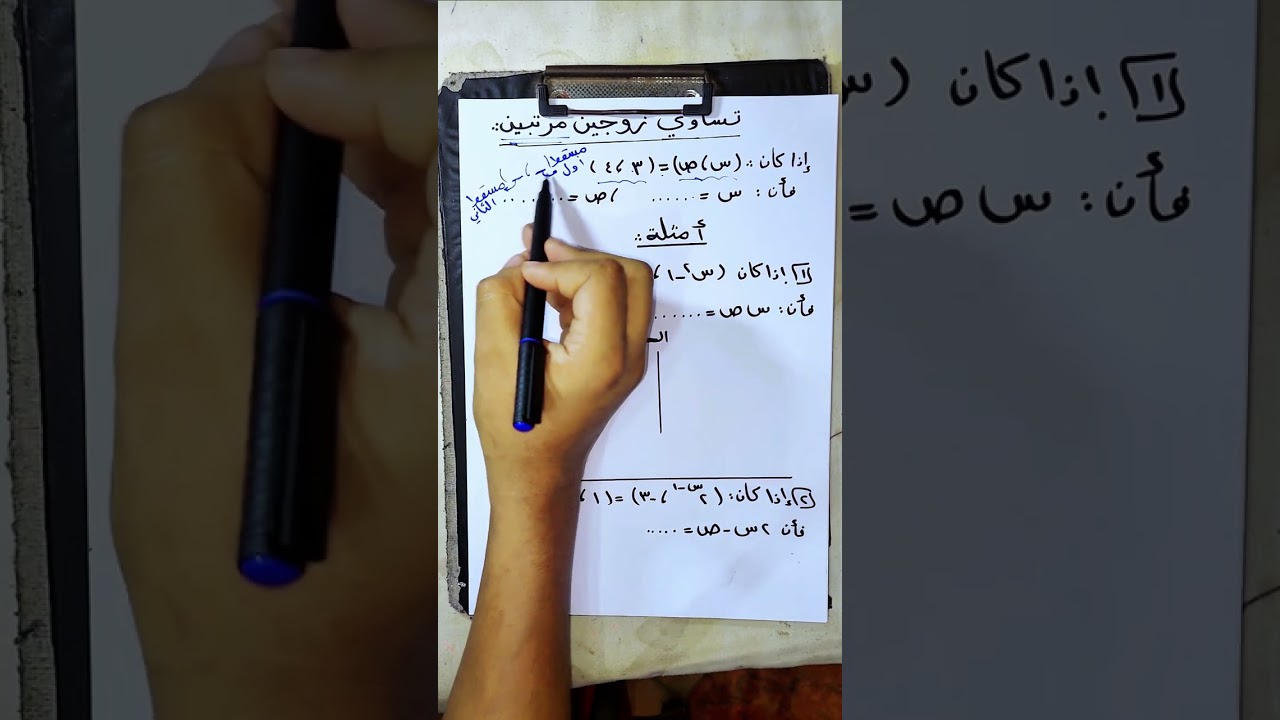 تساوي زوجين مرتبين :
إذا كان : (س ، ص) = (٣ ، ٤)
مسقط أول
مسقط الثاني
فأن : س = ...... ، ص = ........
أمثلة :
١ إذا كان (س٢ - ١ ،
فأن : س ص = ......
٢ إذا كان : (٢س-١ ، -٣) = (١ ،
فأن ٢س - ص = .....
١ إذا كان (س
فأن : س ص =